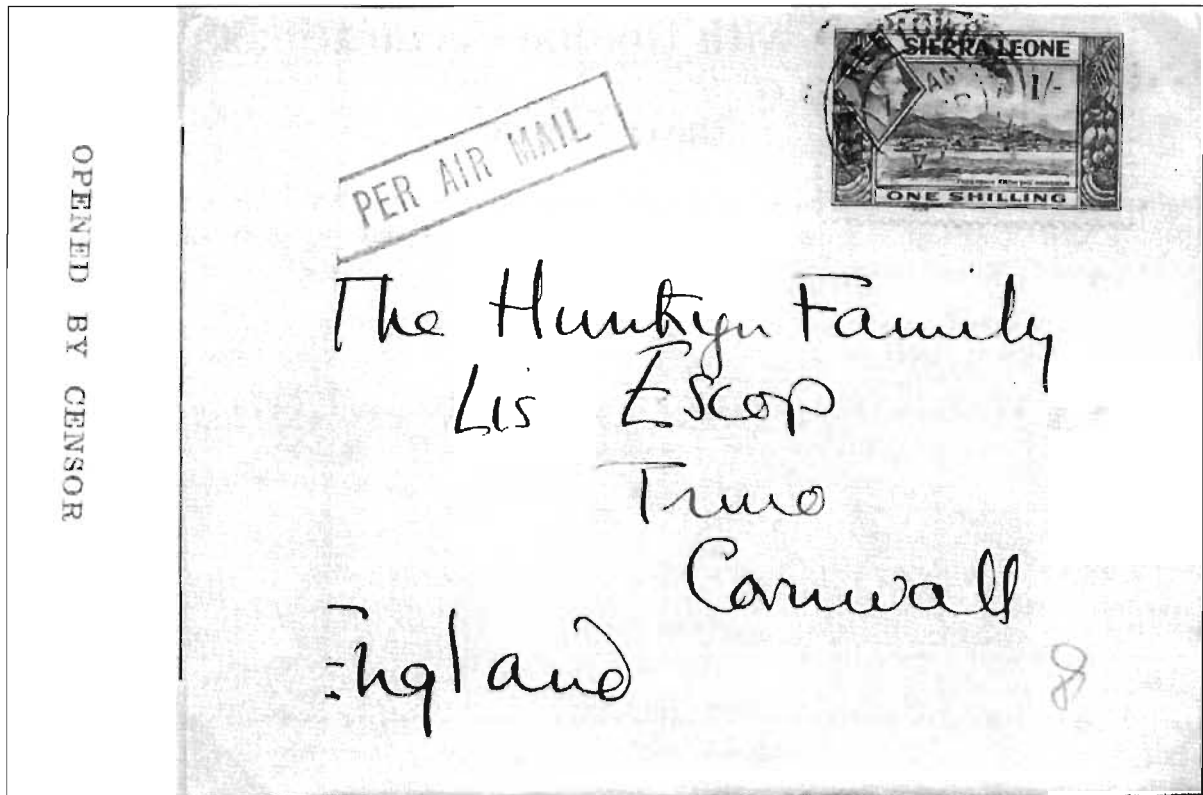 OPENED BY CENSOR
PER AIR MAIL
SIERRA LEONE
1/-
ONE SHILLING
The Hunkyn Family
Lis Escop
Truro
Cornwall
England
8